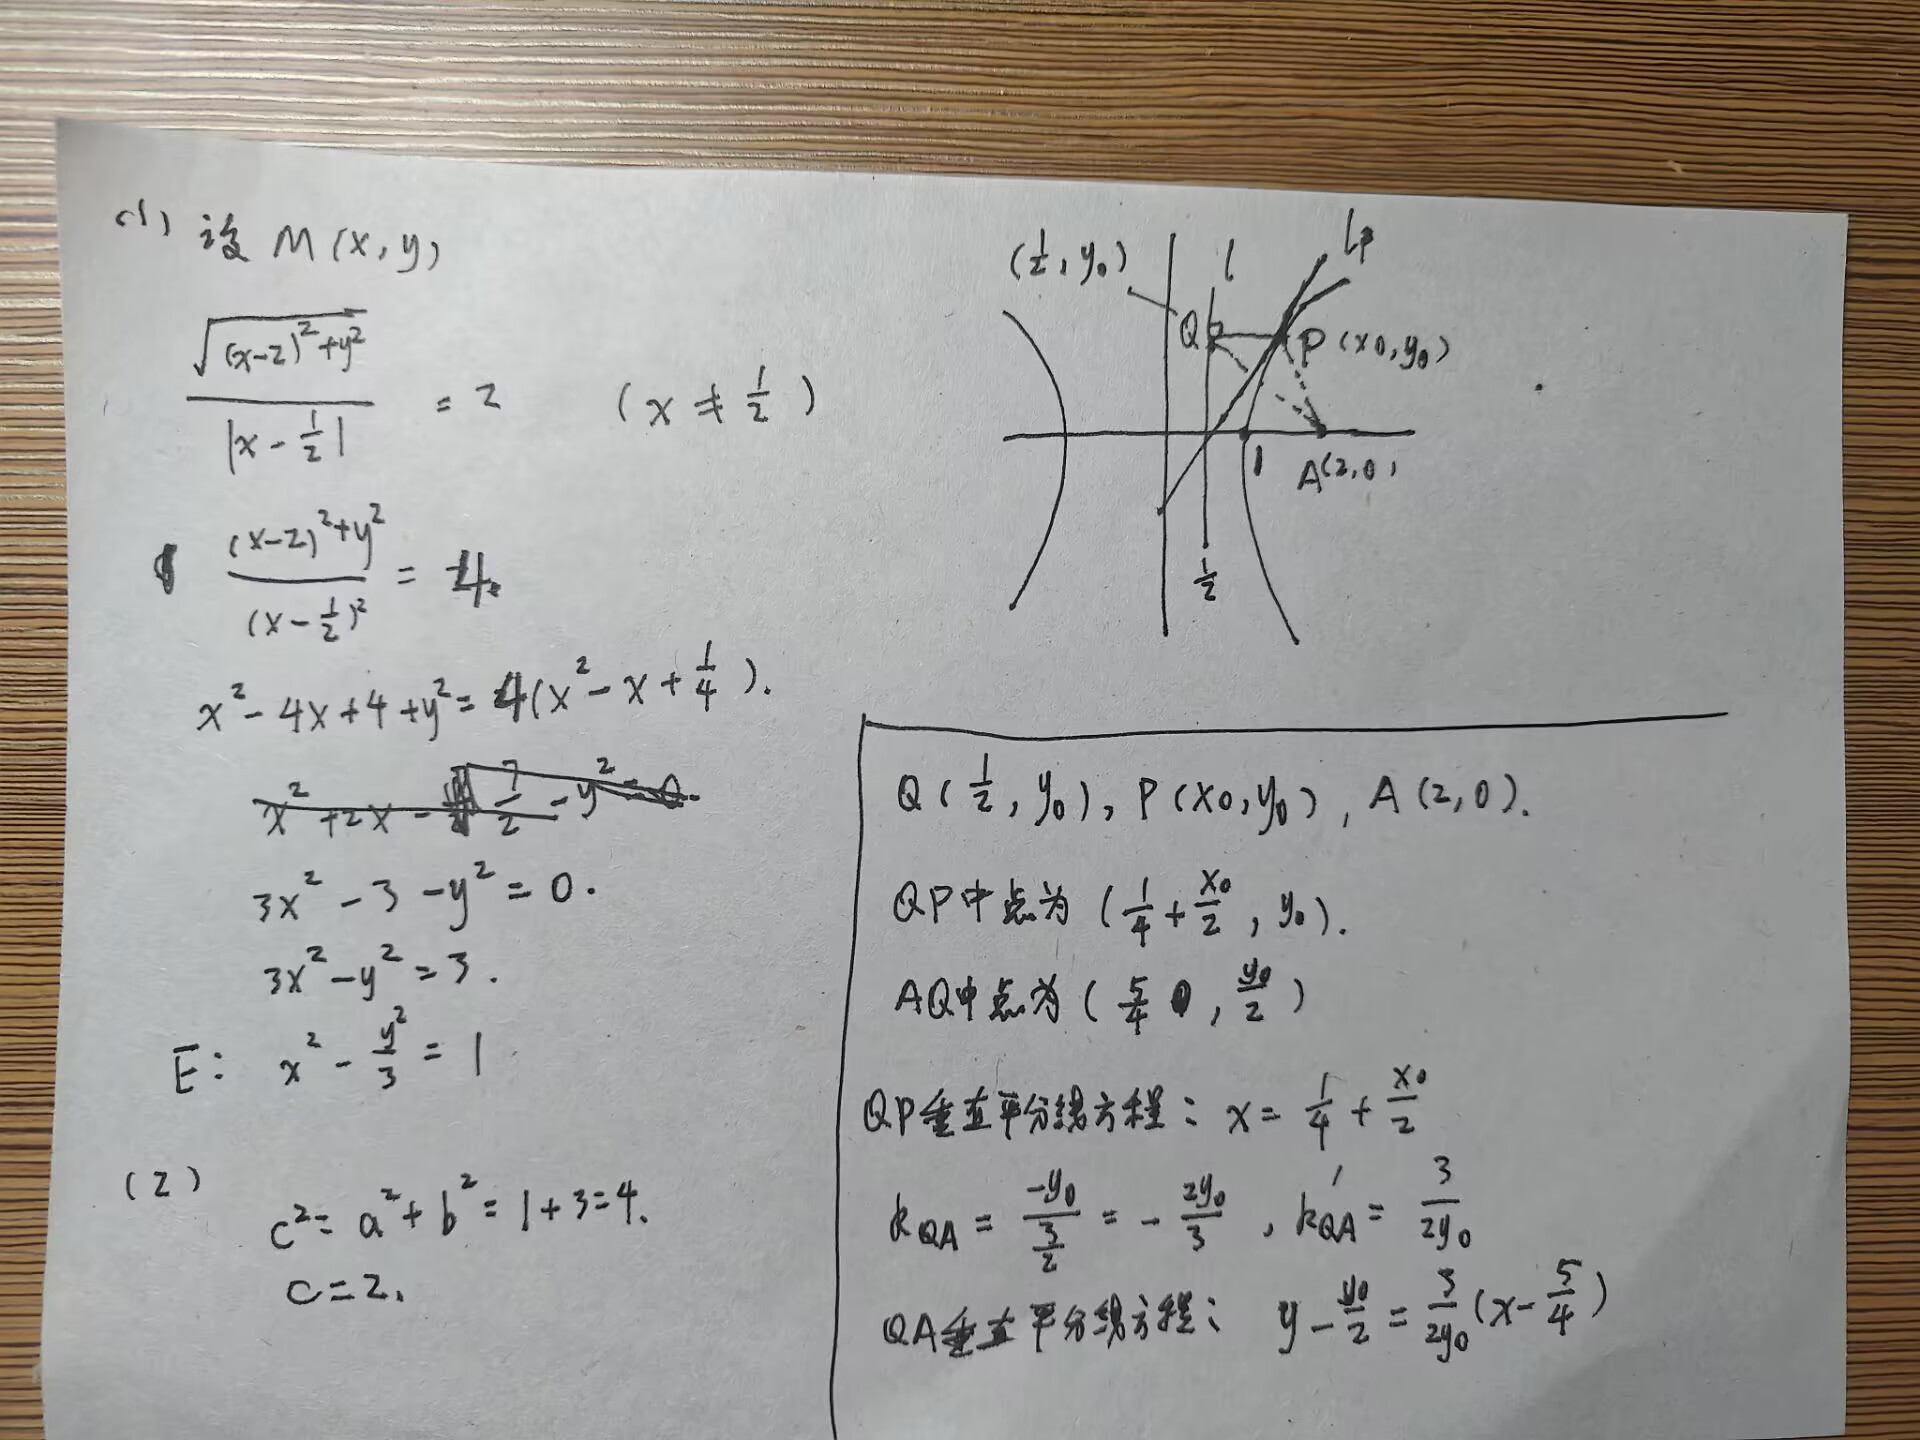 (1) 设 M(x,y)
√((x-2)²+y²) / |x-1/2| = 2 (x≠1/2)
((x-2)²+y²) / (x-1/2)² = 4.
x²-4x+4+y²=4(x²-x+1/4).
3x²-3-y²=0.
3x²-y²=3.
E: x²-y²/3=1
(2)
c²=a²+b²=1+3=4.
c=2.
(1/2, y₀)
l
lp
Q
P(x0,y₀)
1
A(2,0)
1/2
Q(1/2, y₀), P(x0,y₀), A(2,0).
QP中点为(1/4+x₀/2, y₀).
AQ中点为(5/4, y₀/2)
QP垂直平分线方程: x=1/4+x₀/2
k_QA = -y₀/(3/2) = -2y₀/3, k'_QA = 3/(2y₀)
QA垂直平分线方程: y-y₀/2=3/(2y₀)(x-5/4)